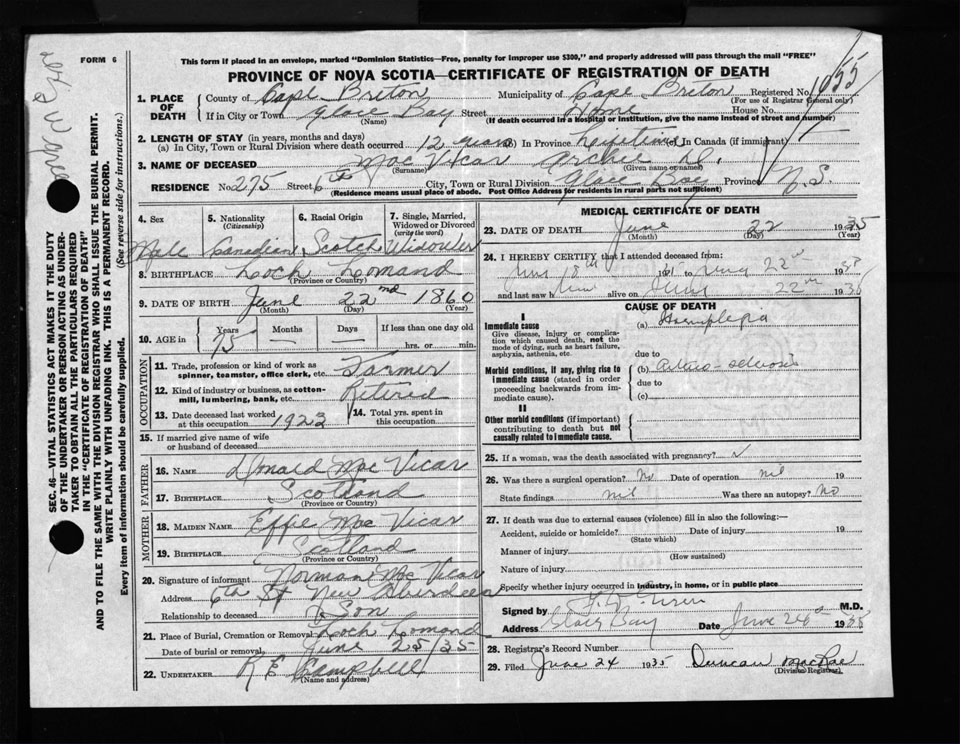 FORM 6
This form if placed in an envelope, marked "Dominion Statistics—Free, penalty for improper use $300," and properly addressed will pass through the mail "FREE"
PROVINCE OF NOVA SCOTIA—CERTIFICATE OF REGISTRATION OF DEATH
1. PLACE OF DEATH
County of Cape Briton Municipality of Cape Briton Registered No. 1655
(For use of Registrar General only)
If in City or Town Glace Bay Street Home House No.
(Name) (If death occurred in a hospital or institution, give the name instead of street and number)
2. LENGTH OF STAY (in years, months and days)
(a) In City, Town or Rural Division where death occurred 12 years (b) In Province Lifetime (c) In Canada (if immigrant)
3. NAME OF DECEASED Mac Vicar Archie D.
(Surname) (Given name or names)
RESIDENCE No. 275 Street 6th City, Town or Rural Division Glace Bay Province N.S.
(Residence means usual place of abode. Post Office Address for residents in rural parts not sufficient)
SEC. 46—VITAL STATISTICS ACT MAKES IT THE DUTY
OF THE UNDERTAKER OR PERSON ACTING AS UNDER-
TAKER TO OBTAIN ALL THE PARTICULARS REQUIRED
IN THE "CERTIFICATE OF REGISTRATION OF DEATH"
AND TO FILE THE SAME WITH THE DIVISION REGISTRAR WHO SHALL ISSUE THE BURIAL PERMIT.
WRITE PLAINLY WITH UNFADING INK. THIS IS A PERMANENT RECORD.
Every item of information should be carefully supplied. (See reverse side for instructions.)
4. Sex 5. Nationality 6. Racial Origin 7. Single, Married,
(Citizenship) Widowed or Divorced
(write the word)
Male Canadian Scotch Widower
8. BIRTHPLACE Loch Lomand
(Province or Country)
9. DATE OF BIRTH June 22nd 1860
(Month) (Day) (Year)
10. AGE in Years Months Days If less than one day old
75 — — hrs. or min.
OCCUPATION
11. Trade, profession or kind of work as Farmer
spinner, teamster, office clerk, etc.
12. Kind of industry or business, as cotton- Retired
mill, lumbering, bank, etc.
13. Date deceased last worked 1923 14. Total yrs. spent in
at this occupation this occupation
15. If married give name of wife
or husband of deceased
FATHER
16. NAME Donald Mac Vicar
17. BIRTHPLACE Scotland
(Province or Country)
MOTHER
18. MAIDEN NAME Effie Mac Vicar
19. BIRTHPLACE Scotland
(Province or Country)
20. Signature of informant Norman Mac Vicar
Address 6th St New Aberdeen
Relationship to deceased Son
21. Place of Burial, Cremation or Removal Loch Lomond
Date of burial or removal June 25/35
22. UNDERTAKER R E Campbell
(Name and address)
MEDICAL CERTIFICATE OF DEATH
23. DATE OF DEATH June 22 1935
(Month) (Day) (Year)
24. I HEREBY CERTIFY that I attended deceased from:
June 18th 19 to 22nd 19
and last saw him alive on June 22nd 19
CAUSE OF DEATH
I
Immediate cause (a) Hemiplegia
Give disease, injury or complica-
tion which caused death, not the
mode of dying, such as heart failure,
asphyxia, asthenia, etc.
due to
Morbid conditions, if any, giving rise to (b) Arterio-sclerosis
immediate cause (stated in order due to
proceeding backwards from im-
mediate cause). (c)
II
Other morbid conditions (if important)
contributing to death but not
causally related to immediate cause.
25. If a woman, was the death associated with pregnancy?
26. Was there a surgical operation? No Date of operation nil 19
State findings nil Was there an autopsy? No
27. If death was due to external causes (violence) fill in also the following:—
Accident, suicide or homicide? Date of injury 19
(State which)
Manner of injury
(How sustained)
Nature of injury
Specify whether injury occurred in industry, in home, or in public place
Signed by M.D.
Address Glace Bay Date June 24th 1935
28. Registrar's Record Number
29. Filed June 24 1935 Duncan MacRae
(Division Registrar)